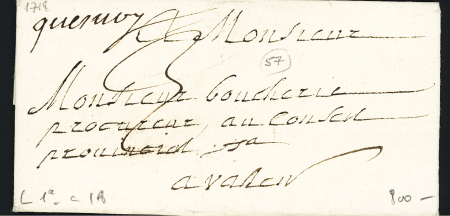 1718
quesnoy
A Monsieur
57
Monsieur boucherie
procureur au Conseil
prouincial
a valen
L 1e c 1B 800 -